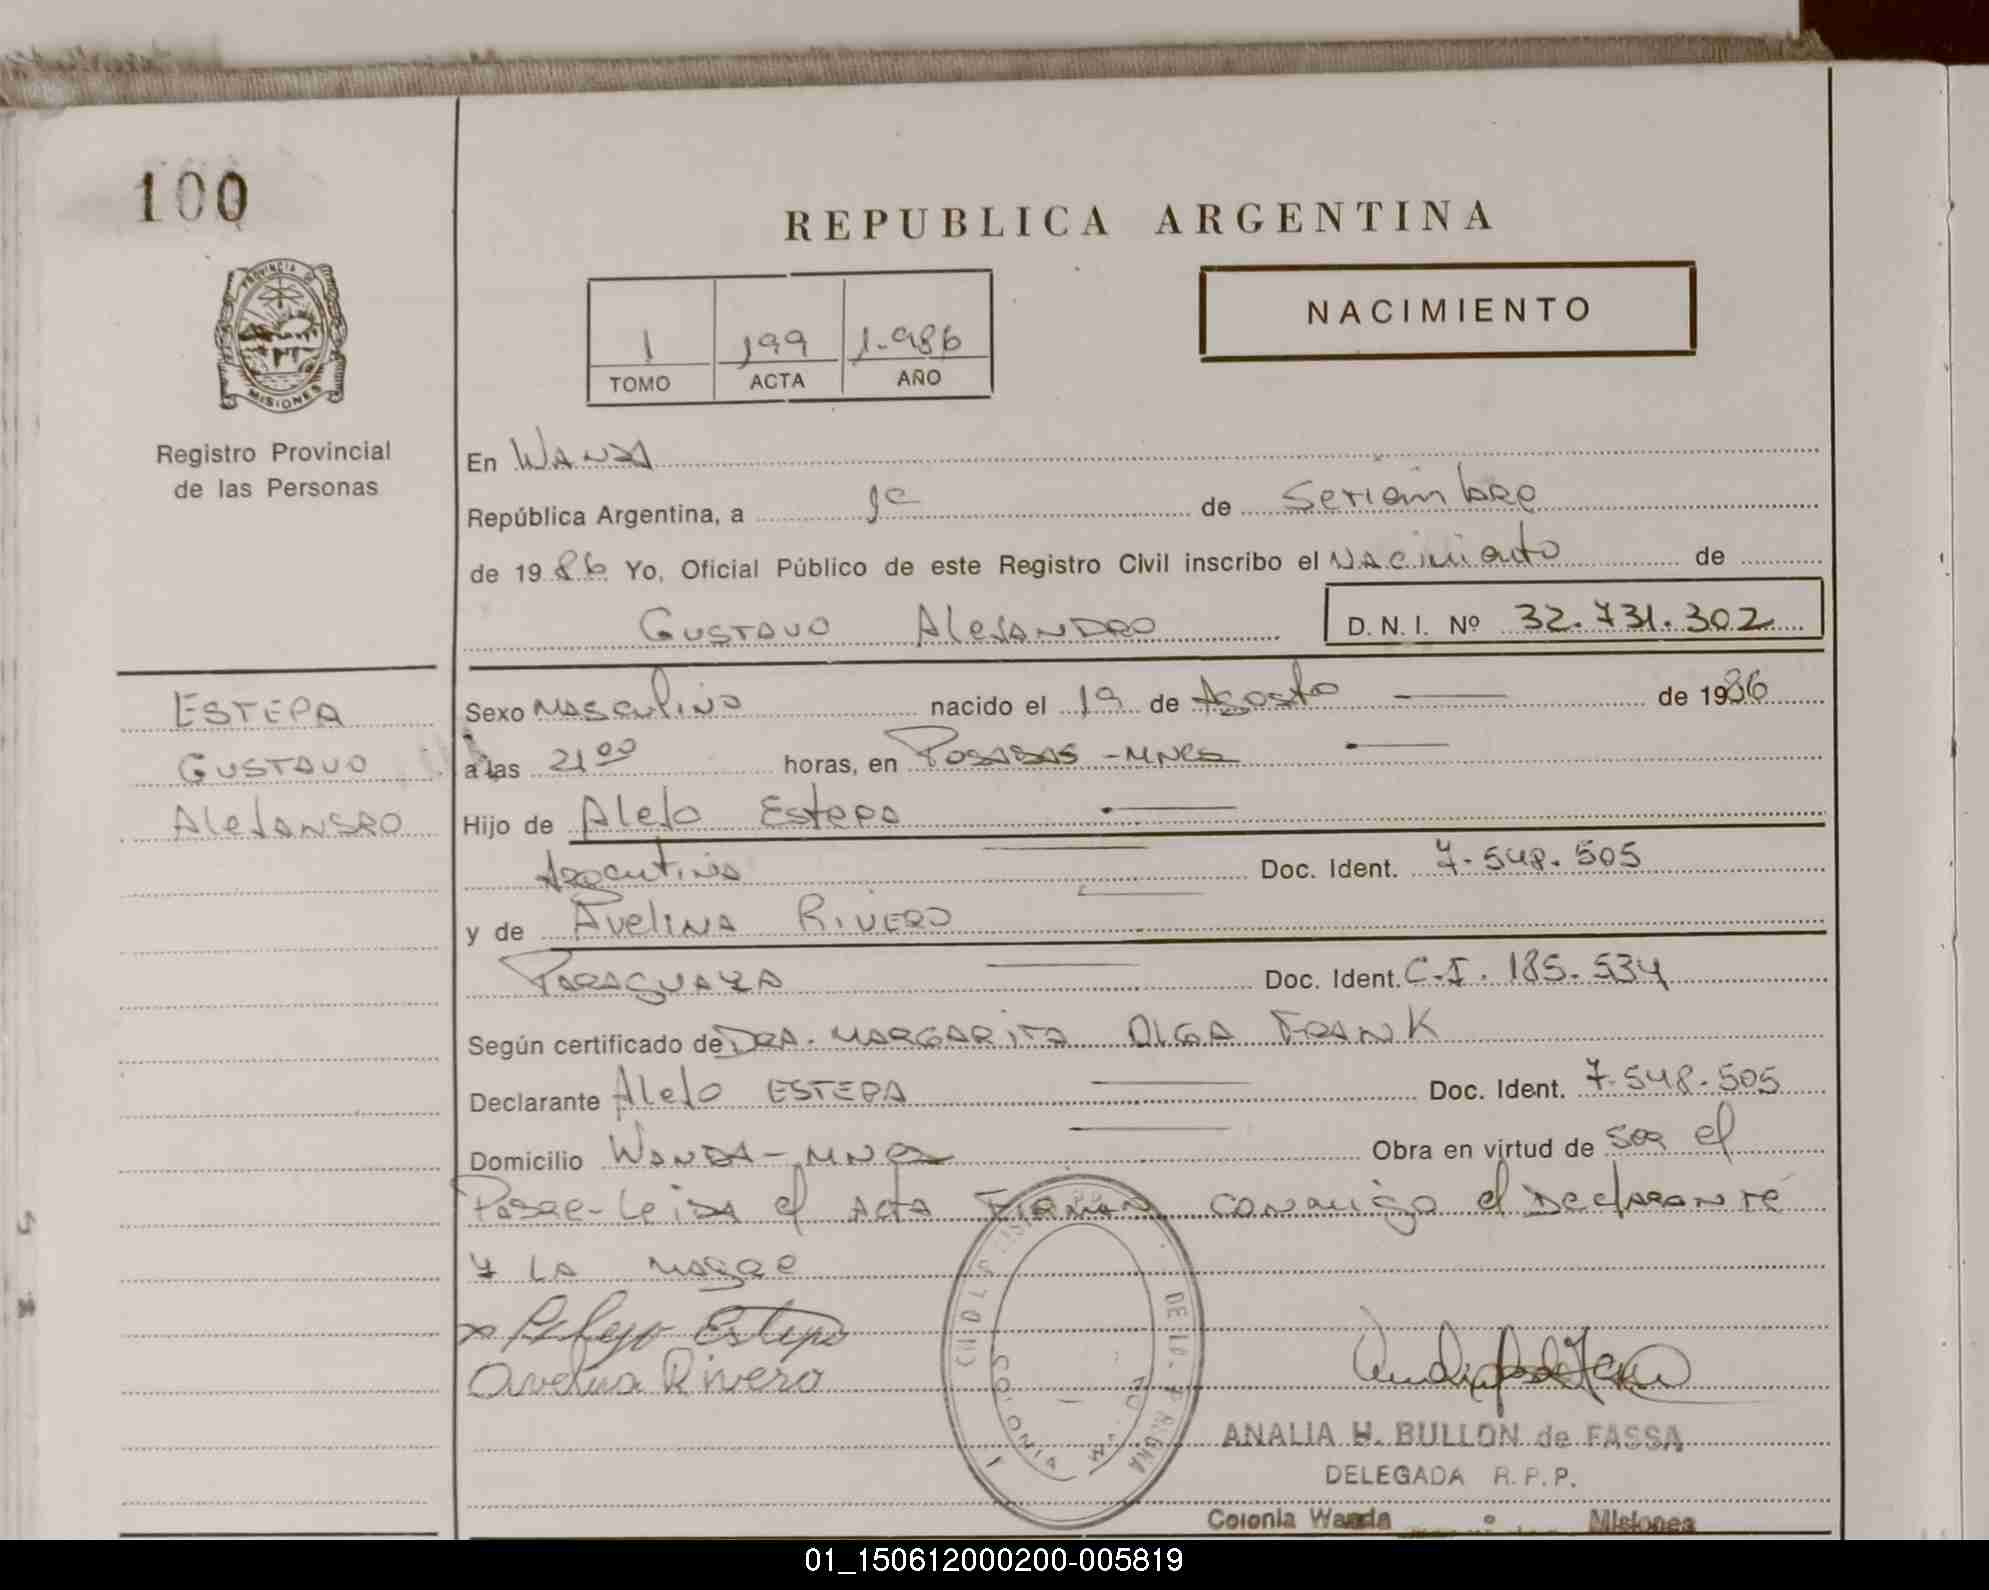 100
REPUBLICA ARGENTINA
PROVINCIA DE
MISIONES
NACIMIENTO
1 199 1.986
TOMO ACTA AÑO
Registro Provincial
de las Personas
En WANDA
República Argentina, a 1º de Setiembre
de 1986 Yo, Oficial Público de este Registro Civil inscribo el Nacimiento de
GUSTAVO AleJANDRO D. N. I. Nº 32.731.302
ESTEPA
GUSTAVO
AleJANDRO
Sexo MASCULINO nacido el 19 de Agosto de 1986
a las 21 00 horas, en POSADAS - MNES
Hijo de AleJo EstepA
Argentino Doc. Ident. 7.548.505
y de AvelINA RIVERO
PARAGUAYA Doc. Ident. C.I. 185.534
Según certificado de DRA. MARGARITA OLGA FRANK
Declarante AleJo ESTEPA Doc. Ident. 7.548.505
Domicilio WANDA - MNES Obra en virtud de ser el
Padre - Leida el ACTA FIRMAN conmigo el DeclARANTE
Y LA MADRE
x Alejo Estepa
Avelina Rivero
COLONIA WANDA
ANALIA H. BULLON de FASSA
DELEGADA R. P. P.
Colonia Wanda Misiones
01_150612000200-005819